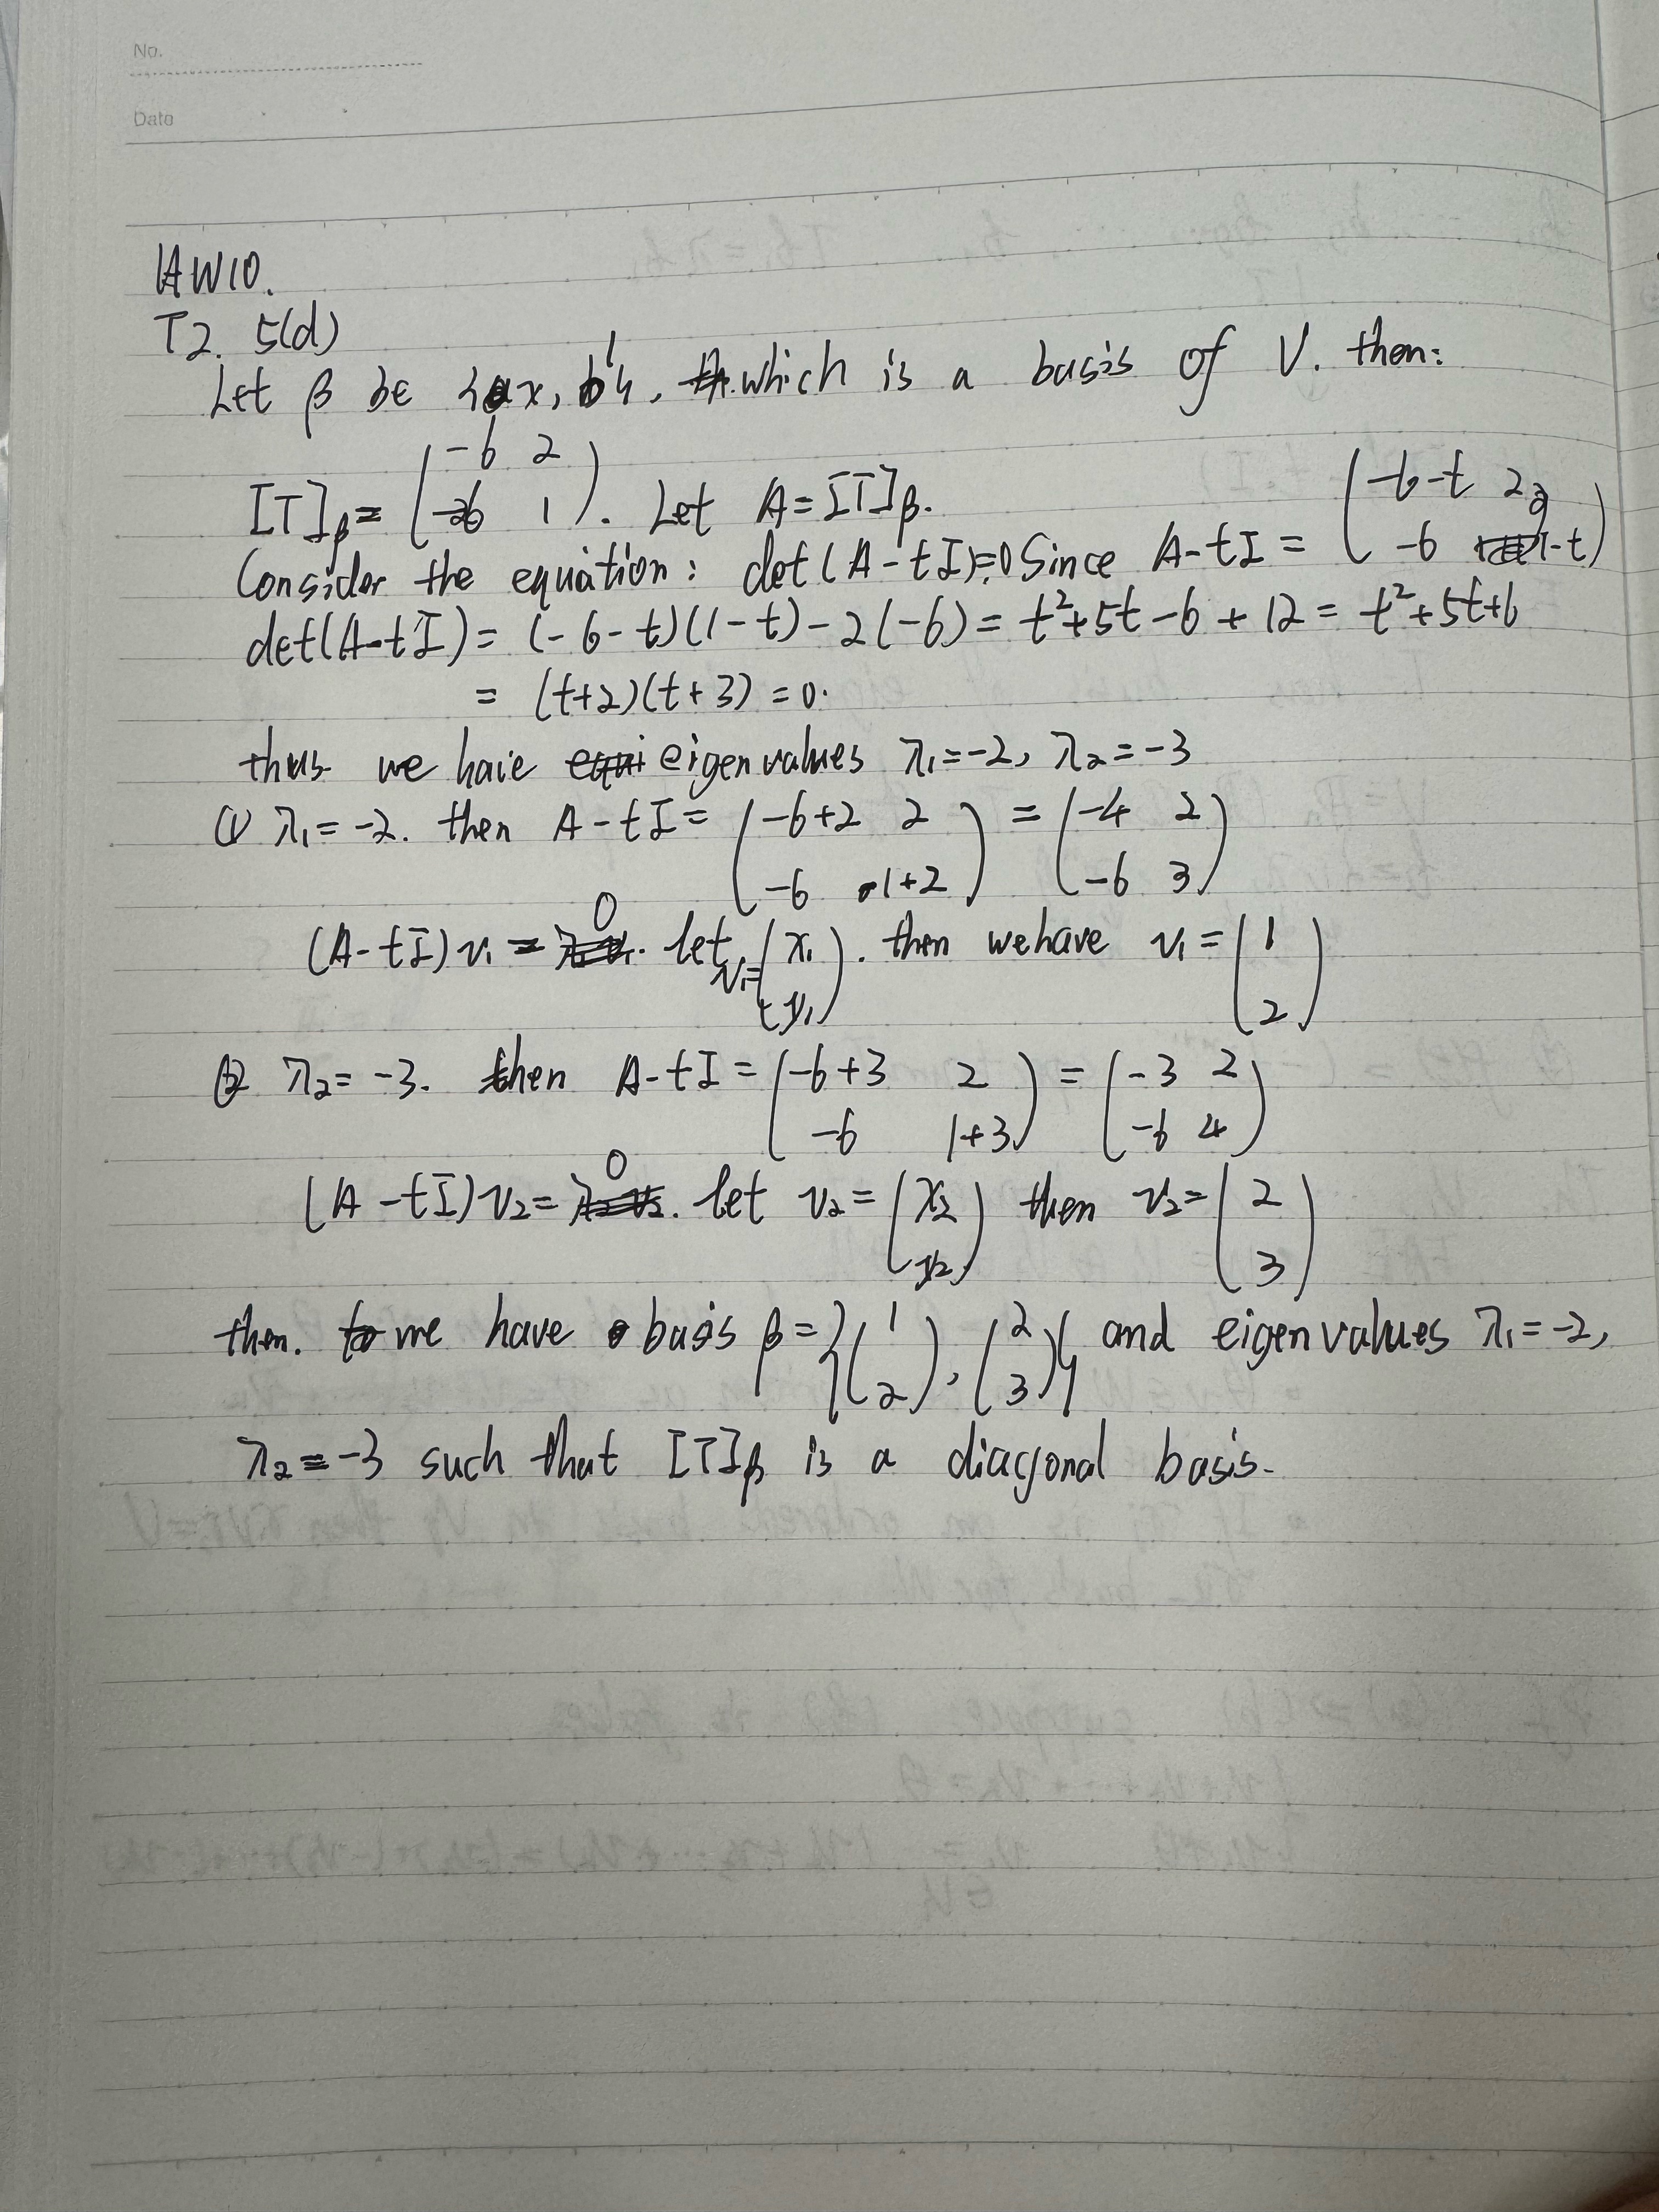 No.
Date
HW10.
T2. 5(d)
Let β be {x, 1}, which is a basis of V. then:
[T]β = (-6 2
-6 1). Let A = [T]β.
Consider the equation: det(A-tI)=0 Since A-tI = (-6-t 2
-6 1-t)
det(A-tI) = (-6-t)(1-t) - 2(-6) = t²+5t-6+12 = t²+5t+6
= (t+2)(t+3) = 0.
thus we have eigenvalues λ₁=-2, λ₂=-3
(1) λ₁=-2. then A-tI = (-6+2 2
-6 1+2) = (-4 2
-6 3)
(A-tI)v₁ = 0. let v₁=(x₁
y₁). then we have v₁ = (1
2)
(2) λ₂= -3. then A-tI = (-6+3 2
-6 1+3) = (-3 2
-6 4)
(A-tI)v₂= 0. let v₂ = (x₂
y₂) then v₂=(2
3)
then. we have basis β = {(1
2), (2
3)} and eigenvalues λ₁=-2,
λ₂=-3 such that [T]β is a diagonal basis.